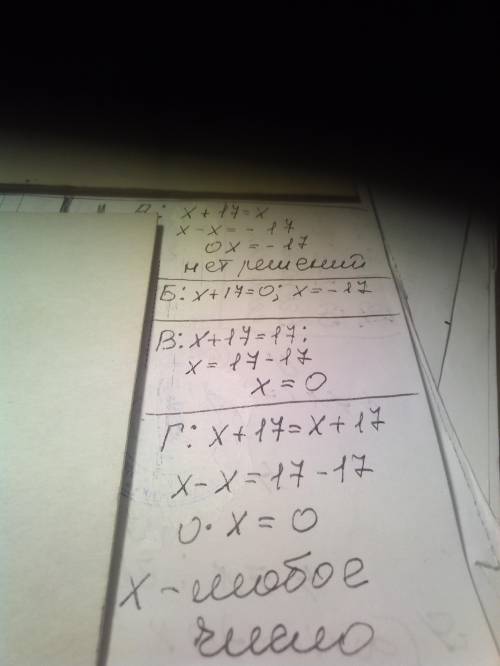 x+17=x
x-x=-17
0x=-17
нет решений
Б: x+17=0; x=-17
В: x+17=17:
x=17-17
x=0
Г: x+17=x+17
x-x=17-17
0·x=0
x-любое
число